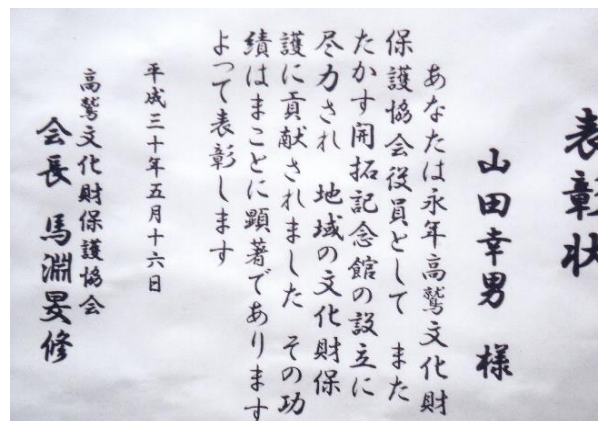 表彰状
山田幸男 様
あなたは永年高鷲文化財
保護協会役員として また
たかす開拓記念館の設立に
尽力され 地域の文化財保
護に貢献されました その功
績はまことに顕著であります
よって表彰します
平成三十年五月十六日
高鷲文化財保護協会
会長 馬淵旻修